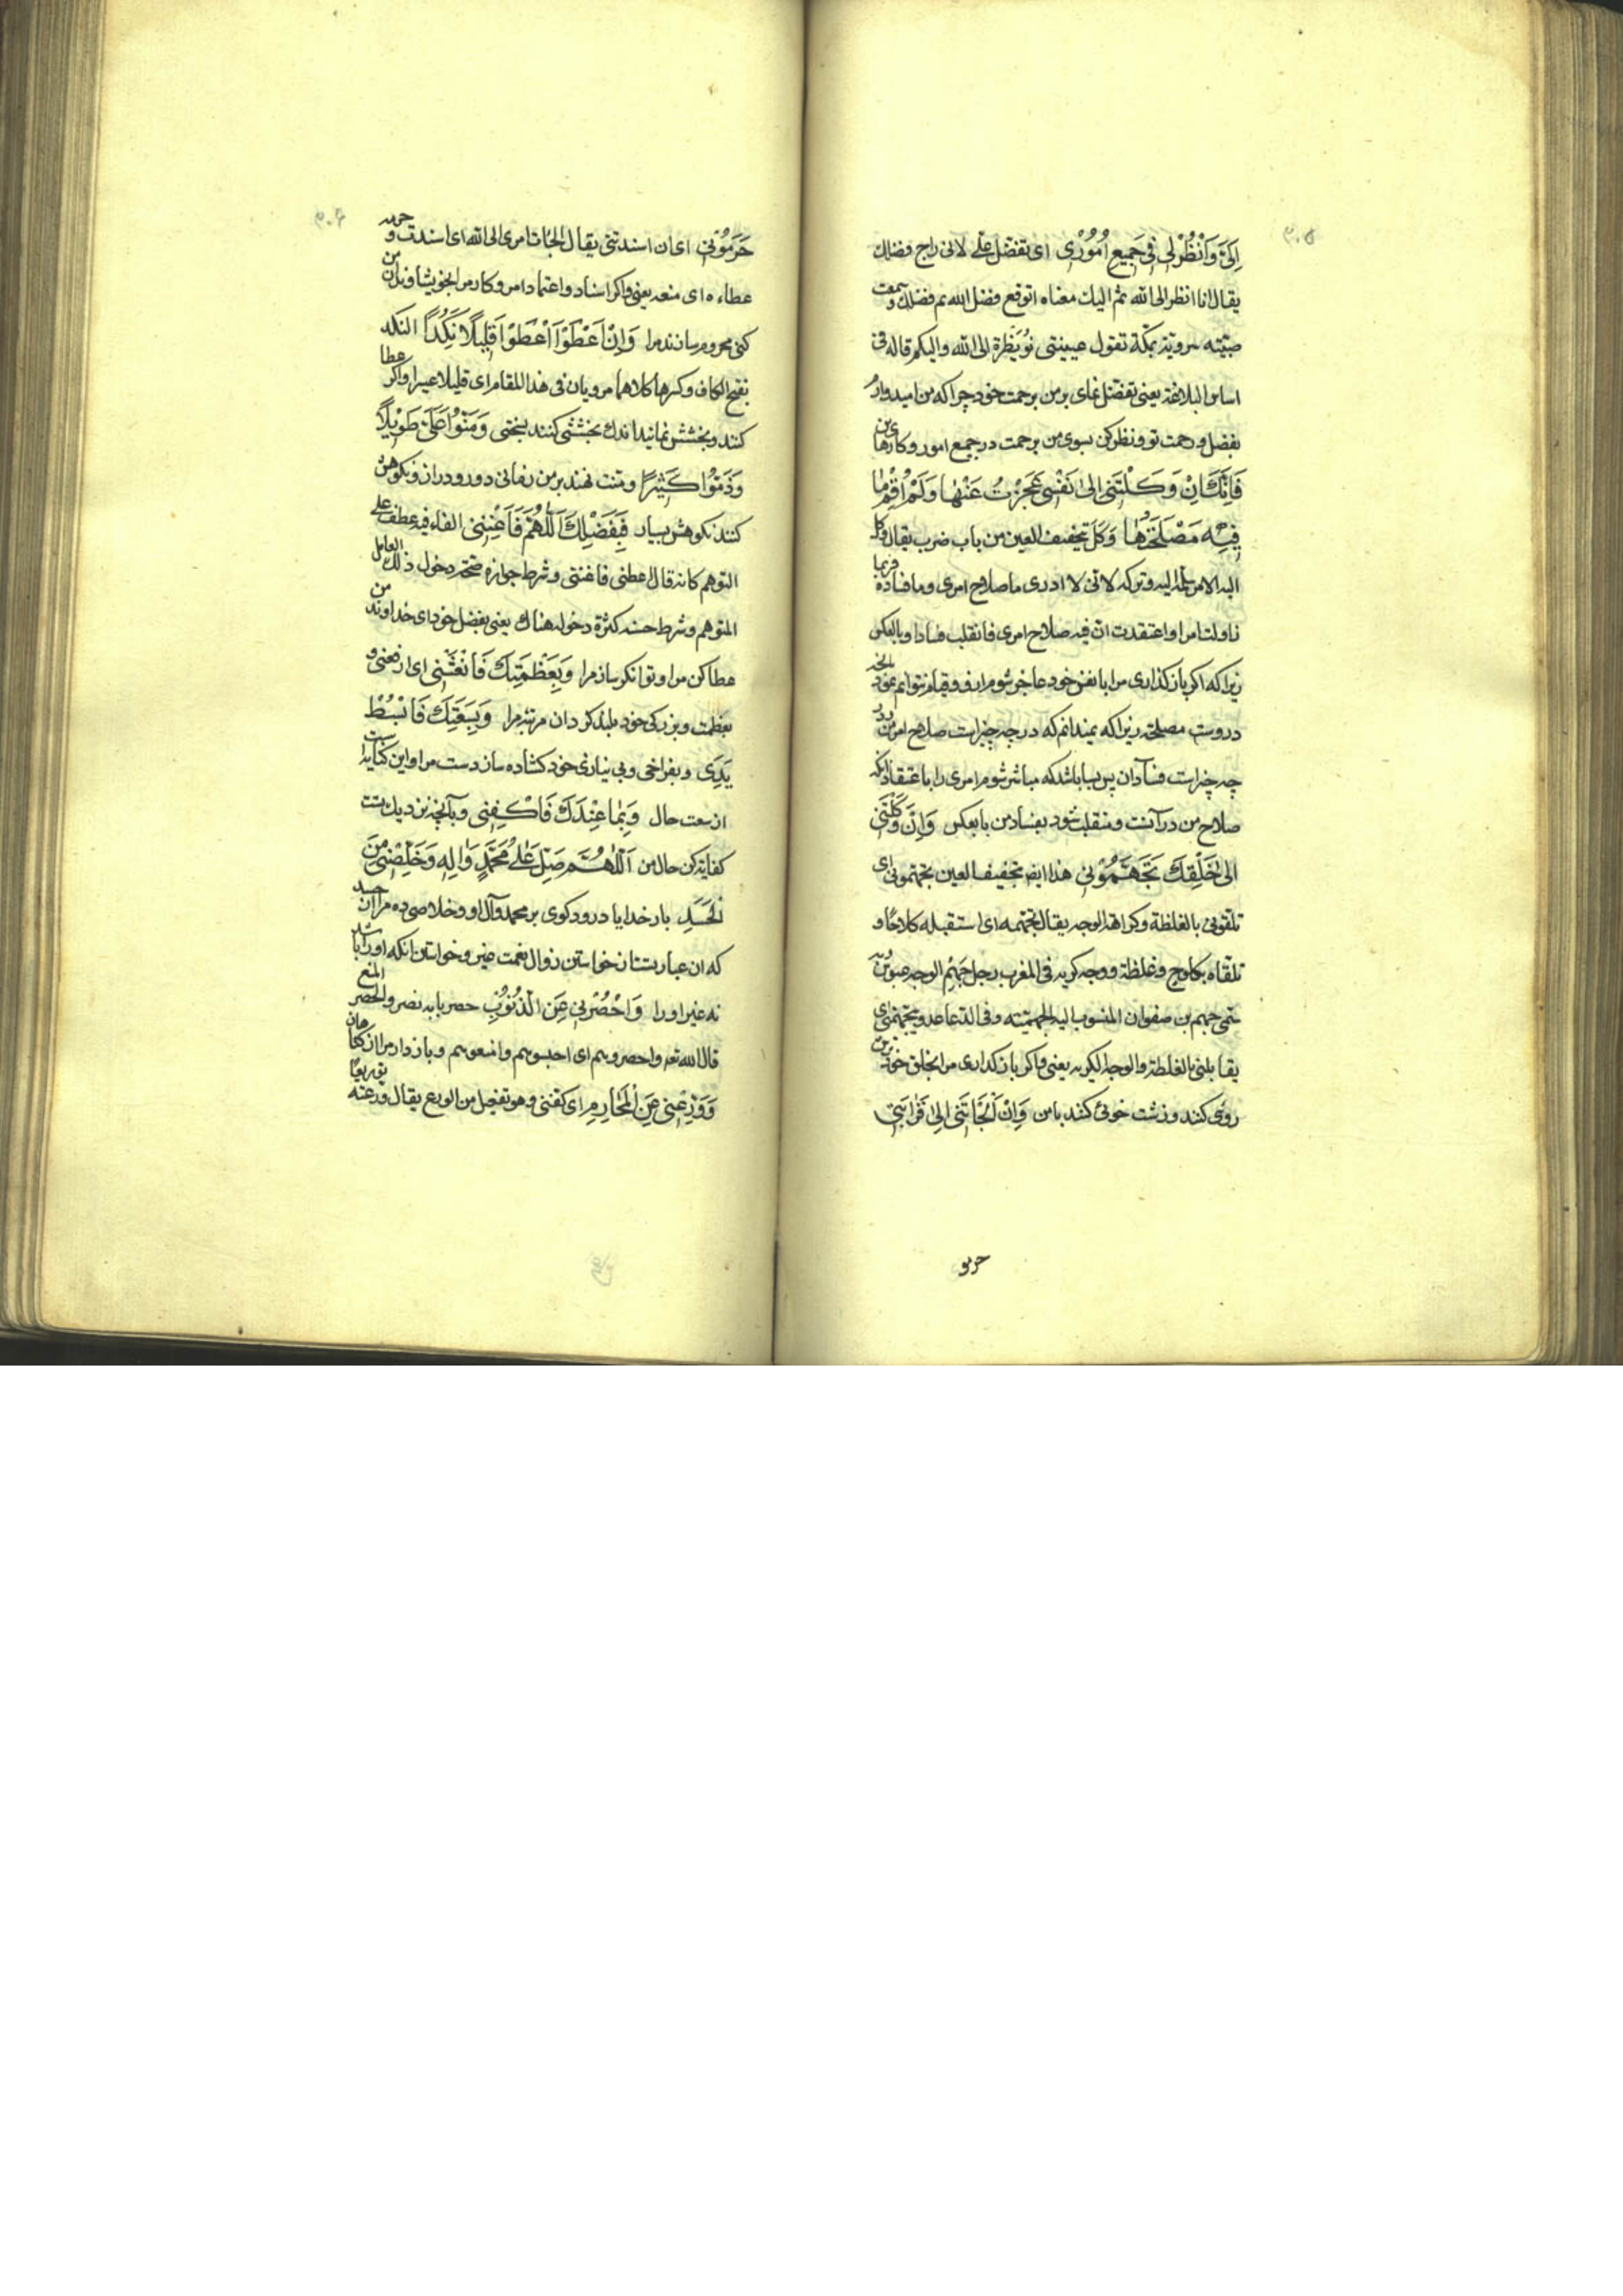 ۳۰۵
اِلَیَّ وَانْظُرْ لی فی جَمیعِ اُمُوْری ای تفضل علی لانی راج فضلک
یقال انا انظر الی الله ثم الیک معناه اتوقع فضل الله ثم فضلک و سمعت
صبیّته سرویّة بمکة تقول عیینتی نُوَیْظِرة الی الله والیکم قاله فی
اساس البلاغة یعنی تفضل نمای بر من برحمت خود چرا که من امیدوار
بفضل و رحمت تو و نظر کن بسوی من برحمت در جمیع امور و کارهای من
فَاِنَّکَ اِنْ وَکَلْتَنی اِلی نَفْسی عَجَزْتُ عَنْها وَلَمْ اُقِمْ ما
فیهِ مَصْلَحَتُها وَکَلَ بتخفیف العین من باب ضرب یقال وکل
الیه الامر سلمه الیه و ترکه لانی لا ادری ما صلاح امری وما فساده فربما
ناولت امرا واعتقدت ان فیه صلاح امری فانقلب فسادا وبالعکس
زیرا که اگر باز گذاری مرا با نفس خود عاجز شوم از او و قیام نتوانم نمود بانچه
دروست مصلحت زیرا که نمیدانم که در چه چیز است صلاح امر من و در
چه چیز است فساد آن پس بسا باشد که مباشر شوم امری را با عتقاد آنکه
صلاح من در آنست و منقلب شود بفساد من یا بعکس وَاِنْ وَکَلْتَنی
اِلی خَلْقِکَ تَجَهَّمُوْنی هذا ایضا بتخفیف العین تجهمونی ای
تلقونی بالغلظة وکراهة الوجه یقال تجهمه ای استقبله کلاحًا و
تلقاه بکلوح وغلظة ووجه کریه فی المغرب رجل جَهْمُ الوجه عبوس به
سمی جهم بن صفوان المنسوب الیه الجهمیّته وفی الدعا عدو یتجهمنی ای
یقابلنی بالغلظة والوجه الکریه یعنی و اگر باز گذاری مرا بخلق خود ترش
روئی کنند و زشت خوئی کنند با من وَاِنْ اَلْجَأْتَنی اِلی قَرابَتی
حرمو
۳۰۶
حَرَمُوْنی ای ان اسندتنی یقال الجات امری الی الله ای اسندت و حرمه
عطاءه ای منعه یعنی و اگر اسناد و اعتماد امر و کار مرا بخویشاوندان من
کنی محروم سازند مرا وَاِنْ اَعْطَوْا اَعْطَوْا قَلیلًا نَکِدًا النکد
بفتح الکاف وکسرها کلاهما مرویان فی هذا المقام ای قلیلا عسرا و اگر عطا
کنند و بخشش نمایند اندک بخششی کنند بسختی وَمَنُّوْا عَلَیَّ طَویْلًا
وَذَمُّوْا کَثیْرًا و منت نهند بر من زمانی دور و دراز و نکوهش
کنند نکوهش بسیار فَبِفَضْلِکَ اَللّهُمَّ فَاَغْنِنی الفاء فیه عطف علی
التوهم کانه قال اعطنی فاغننی وشرط جوازه صحة دخول ذلک العامل
المتوهم وشرط حسنه کثرة دخوله هناک یعنی بفضل خود ای خداوند من
عطا کن مرا و توانگر ساز مرا وَبِعَظَمَتِکَ فَانْعَشْنی ای ارفعنی و
بعظمت و بزرگی خود بلند گردان مرتبه مرا وَبِسَعَتِکَ فَابْسُطْ
یَدی و بفراخی و بی نیازی خود گشاده ساز دست مرا و این کنایه است
از سعت حال وَبِما عِنْدَکَ فَاکْفِنی و بآنچه نزدیک تست
کفایت کن حال من اَللّهُمَّ صَلِّ عَلی مُحَمَّدٍ وَالِهِ وَخَلِّصْنی مِنَ
الْحَسَدِ بار خدایا درود گوی بر محمد وآل او و خلاصی ده مرا از حسد
که ان عبارتست از خواستن زوال نعمت غیر و خواستن انکه او را باشد
نه غیر او را وَاحْصُرْنی عَنِ الذُّنُوْبِ حصر بابه نصر والحصر المنع
قال الله تعه واحصروهم ای احبسوهم وامنعوهم و بازدار مرا از گناهان
وَوَرِّعْنی عَنِ الْمَحارِمِ ای کففنی وهو تفعیل من الورع یقال ورعته توریعًا